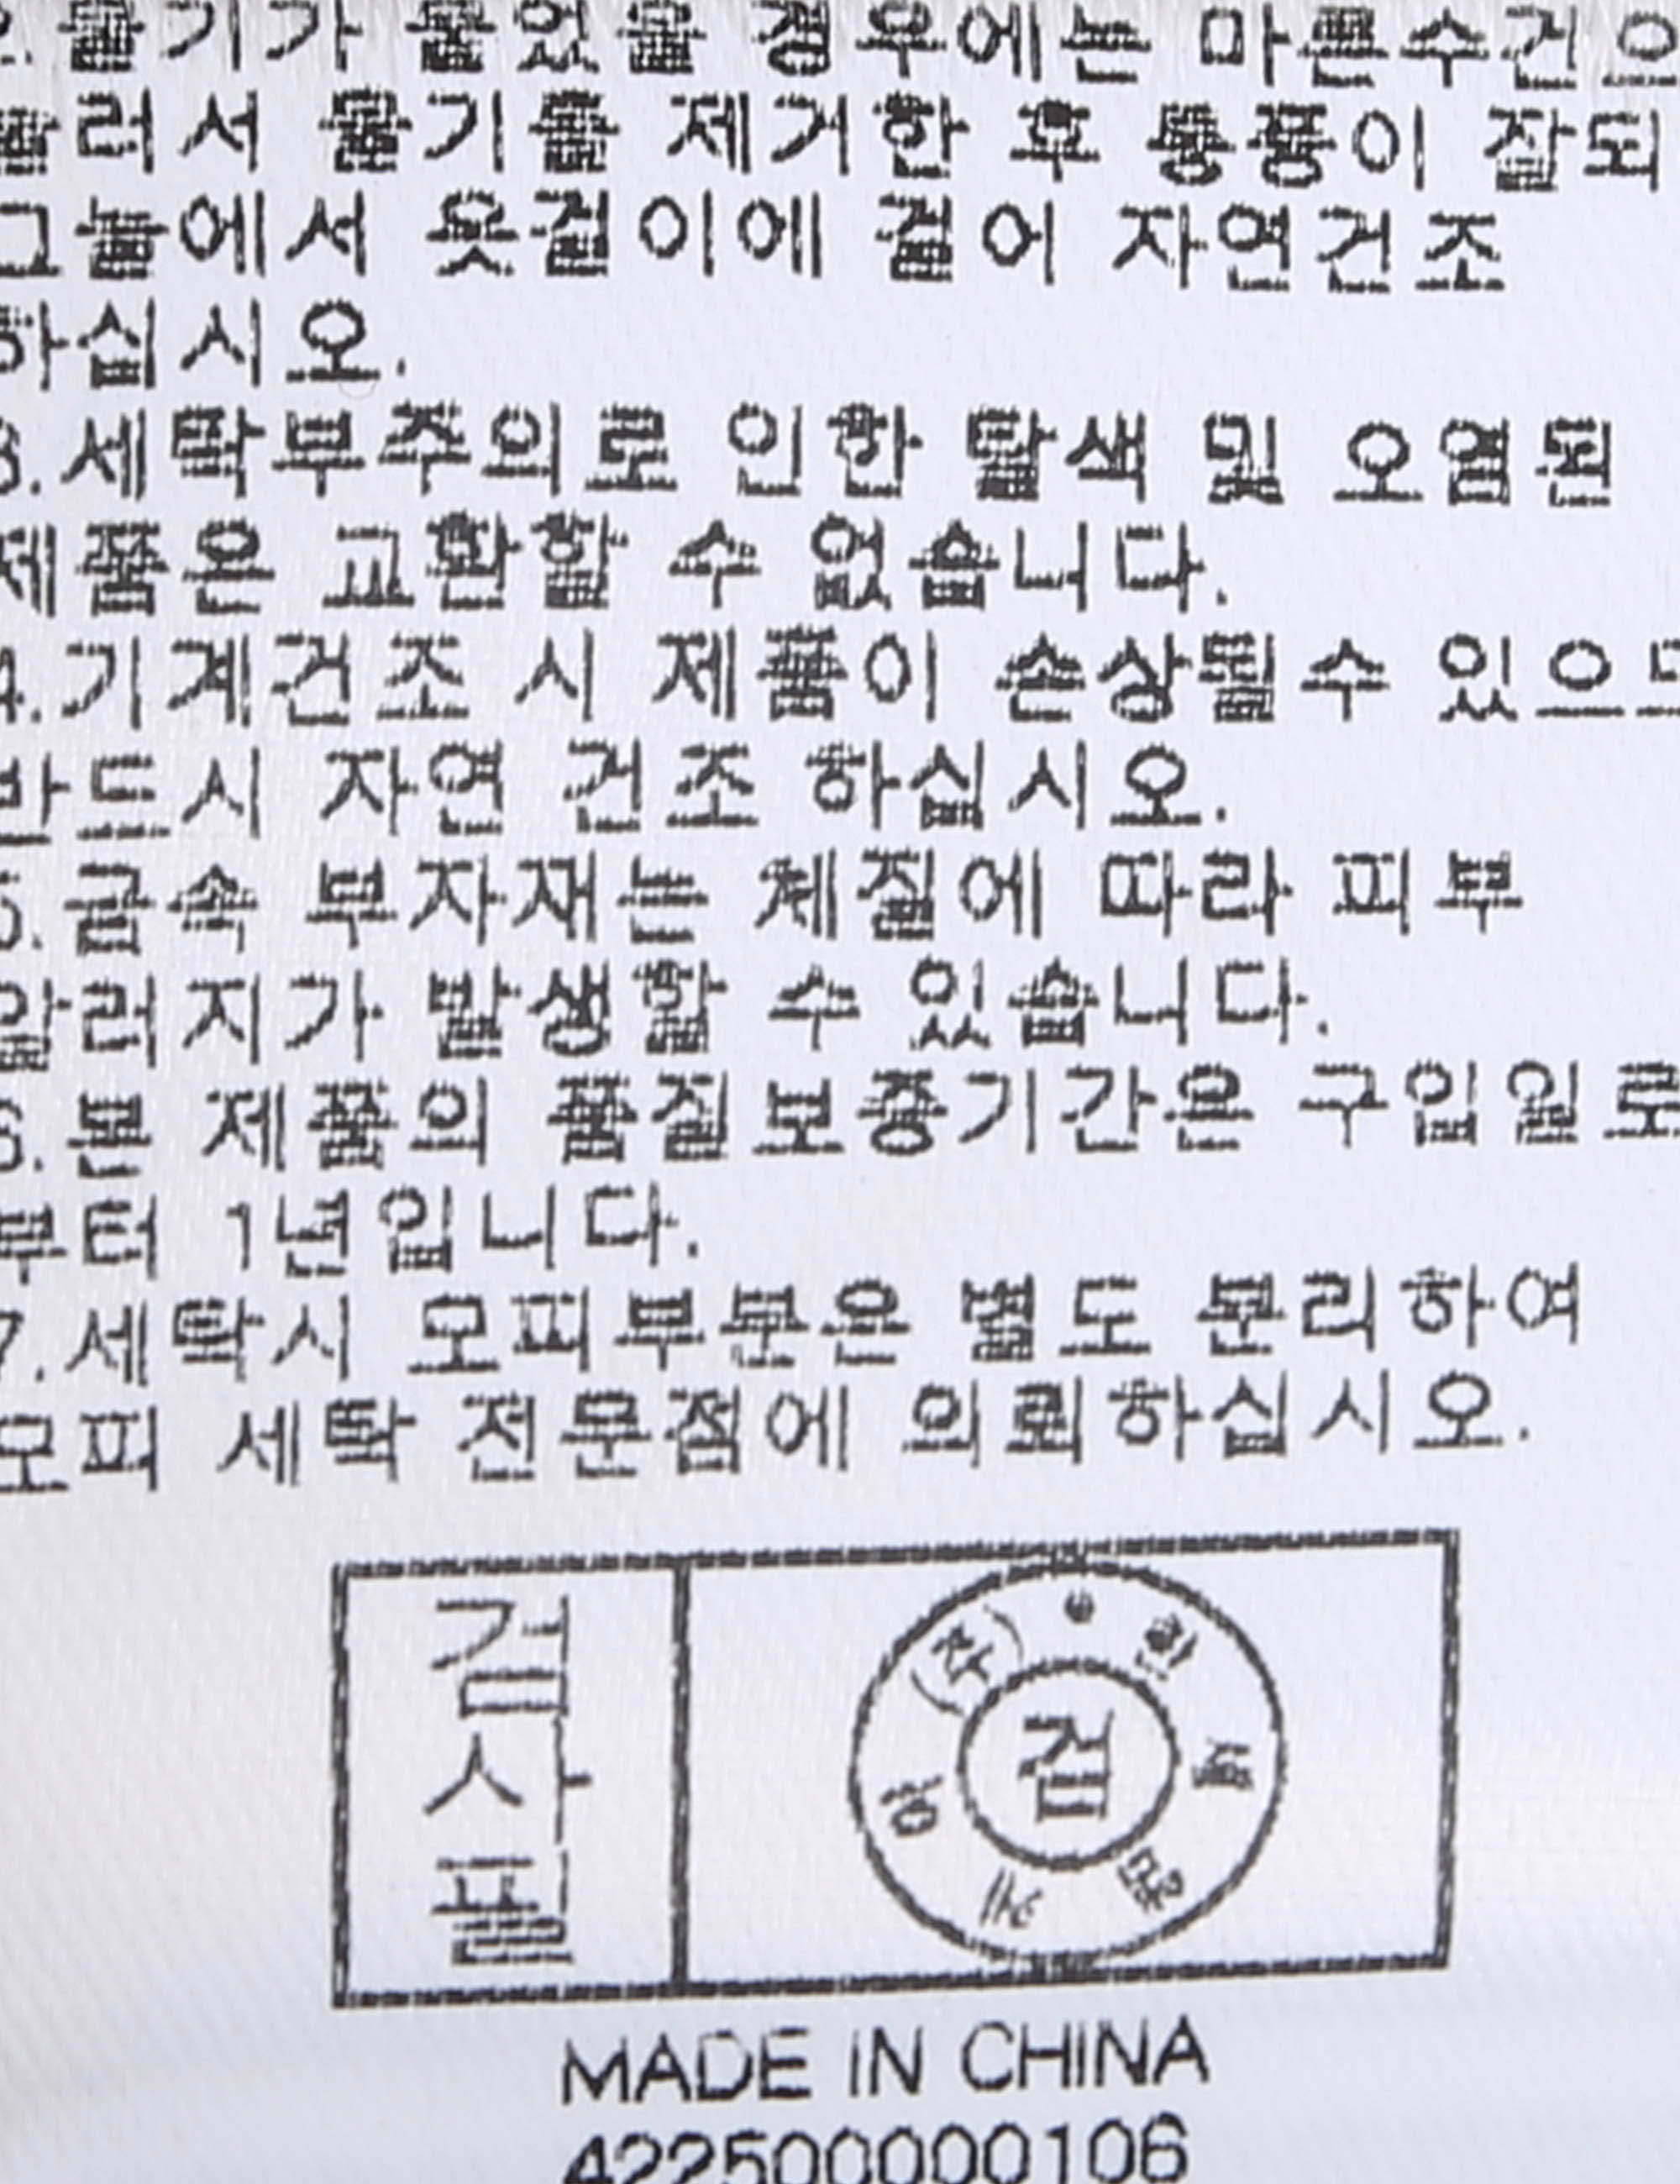 2.물기가 묻었을 경우에는 마른수건으
눌러서 물기를 제거한 후 통풍이 잘되
그늘에서 옷걸이에 걸어 자연건조
하십시오.
3.세탁부주의로 인한 탈색 및 오염된
제품은 교환할 수 없습니다.
4.기계건조 시 제품이 손상될수 있으므
반드시 자연 건조 하십시오.
5.금속 부자재는 체질에 따라 피부
알러지가 발생할 수 있습니다.
6.본 제품의 품질보증기간은 구입일로
부터 1년입니다.
7.세탁시 모피부분은 별도 분리하여
모피 세탁 전문점에 의뢰하십시오.
검사필
(주)
검
MADE IN CHINA
422500000106